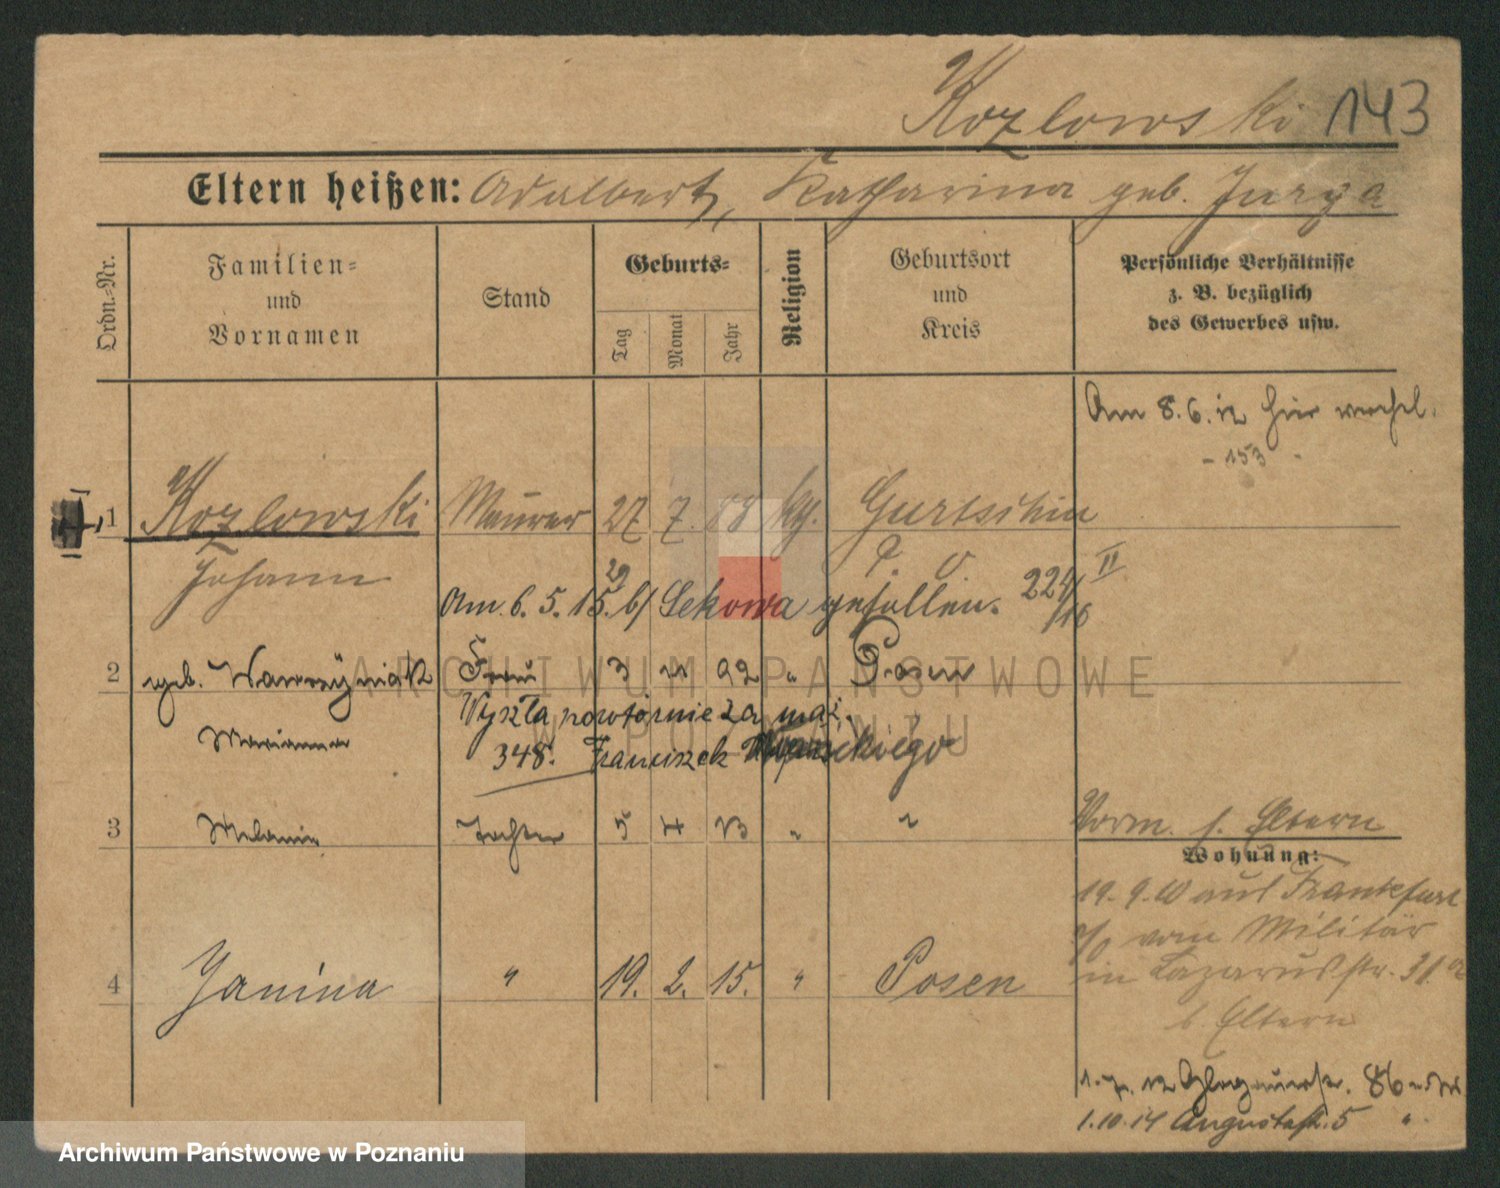 Kozlowski 143
Eltern heißen: Adalbert, Katharina geb. Jurga
Ordn.-Nr.
Familien-
und
Vornamen
Stand
Geburts-
Tag
Monat
Jahr
Religion
Geburtsort
und
Kreis
Persönliche Verhältnisse
z. B. bezüglich
des Gewerbes usw.
Am 8.6.12 hier
- 153 -
1 Kozlowski Maurer 27 7. 88 Gurtschin
Johann P. O.
Am. 6. 5. 15. b/ Sekowa gefallen. 224/16 II
29
2 geb. Wawrzyniak Frau 3 92 " Posen
Marianna
Wyszła powtórnie za mąż.
348. Franciszek
3 Melanie Tochter 5 4 13 " "
Vorm. s. Eltern
Wohnung:
19. 9. 10 aus Frankfurt
a/O vom Militär
in Lazarusstr. 31a
b. Eltern
4 Janina " 19. 2. 15. " Posen
1. 7. 12 Glogauerstr. 86
1. 10. 14 Augustastr. 5 "
ARCHIWUM PAŃSTWOWE
W POZNANIU
Archiwum Państwowe w Poznaniu